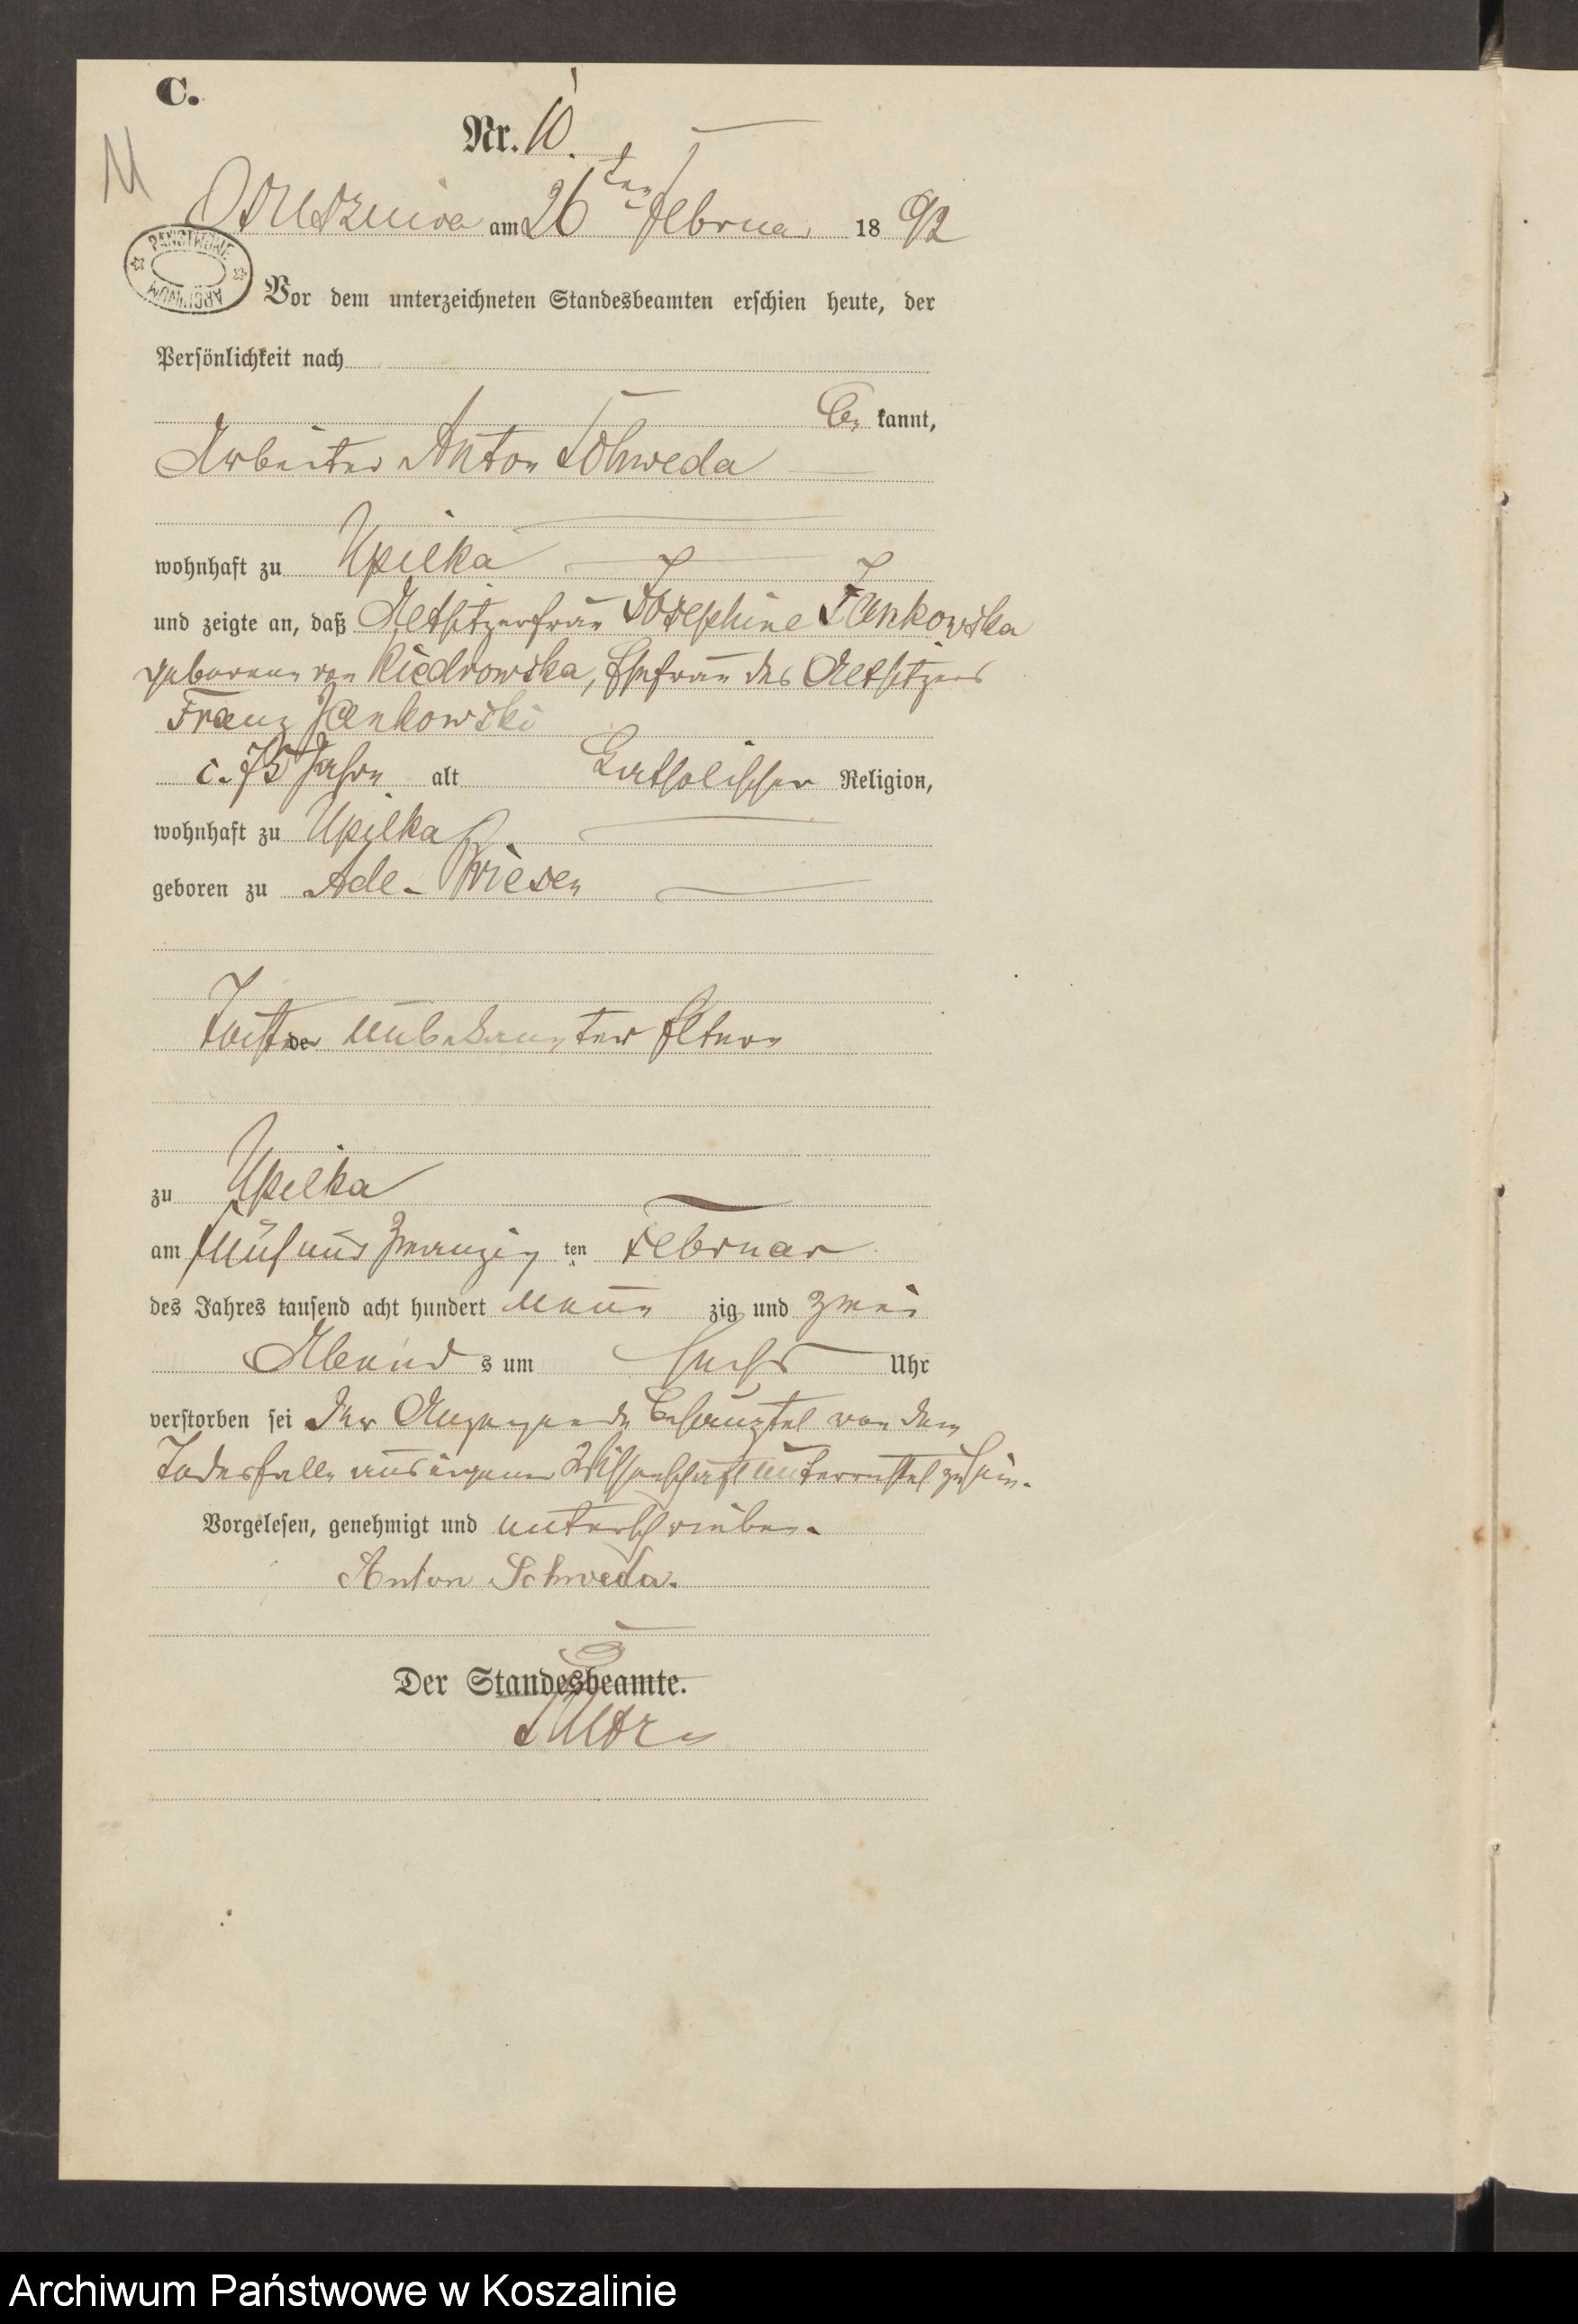 C.
Nr. 10.
11
Ostusznica am 26ten Februar 1892
PAŃSTWOWE
ARCHIWUM
Vor dem unterzeichneten Standesbeamten erschien heute, der
Persönlichkeit nach
be kannt,
Arbeiter Anton Schweda
wohnhaft zu Upilka
und zeigte an, daß Altsitzerfrau Josephine Jankowska
geborene von Kiedrowska, Ehefrau des Altsitzers
Franz Jankowski
c. 75 Jahre alt Katholischer Religion,
wohnhaft zu Upilka
geboren zu Adl. Briesen
Tochter unbekannter Eltern
zu Upilka
am fünf und zwanzig ten Februar
des Jahres tausend acht hundert neun zig und zwei
Abend s um sechs Uhr
verstorben sei Der Anzeigende behauptet von dem
Todesfalle aus eigener Wissenschaft unterrichtet zu sein.
Vorgelesen, genehmigt und unterschrieben.
Anton Schweda.
Der Standesbeamte.
Archiwum Państwowe w Koszalinie